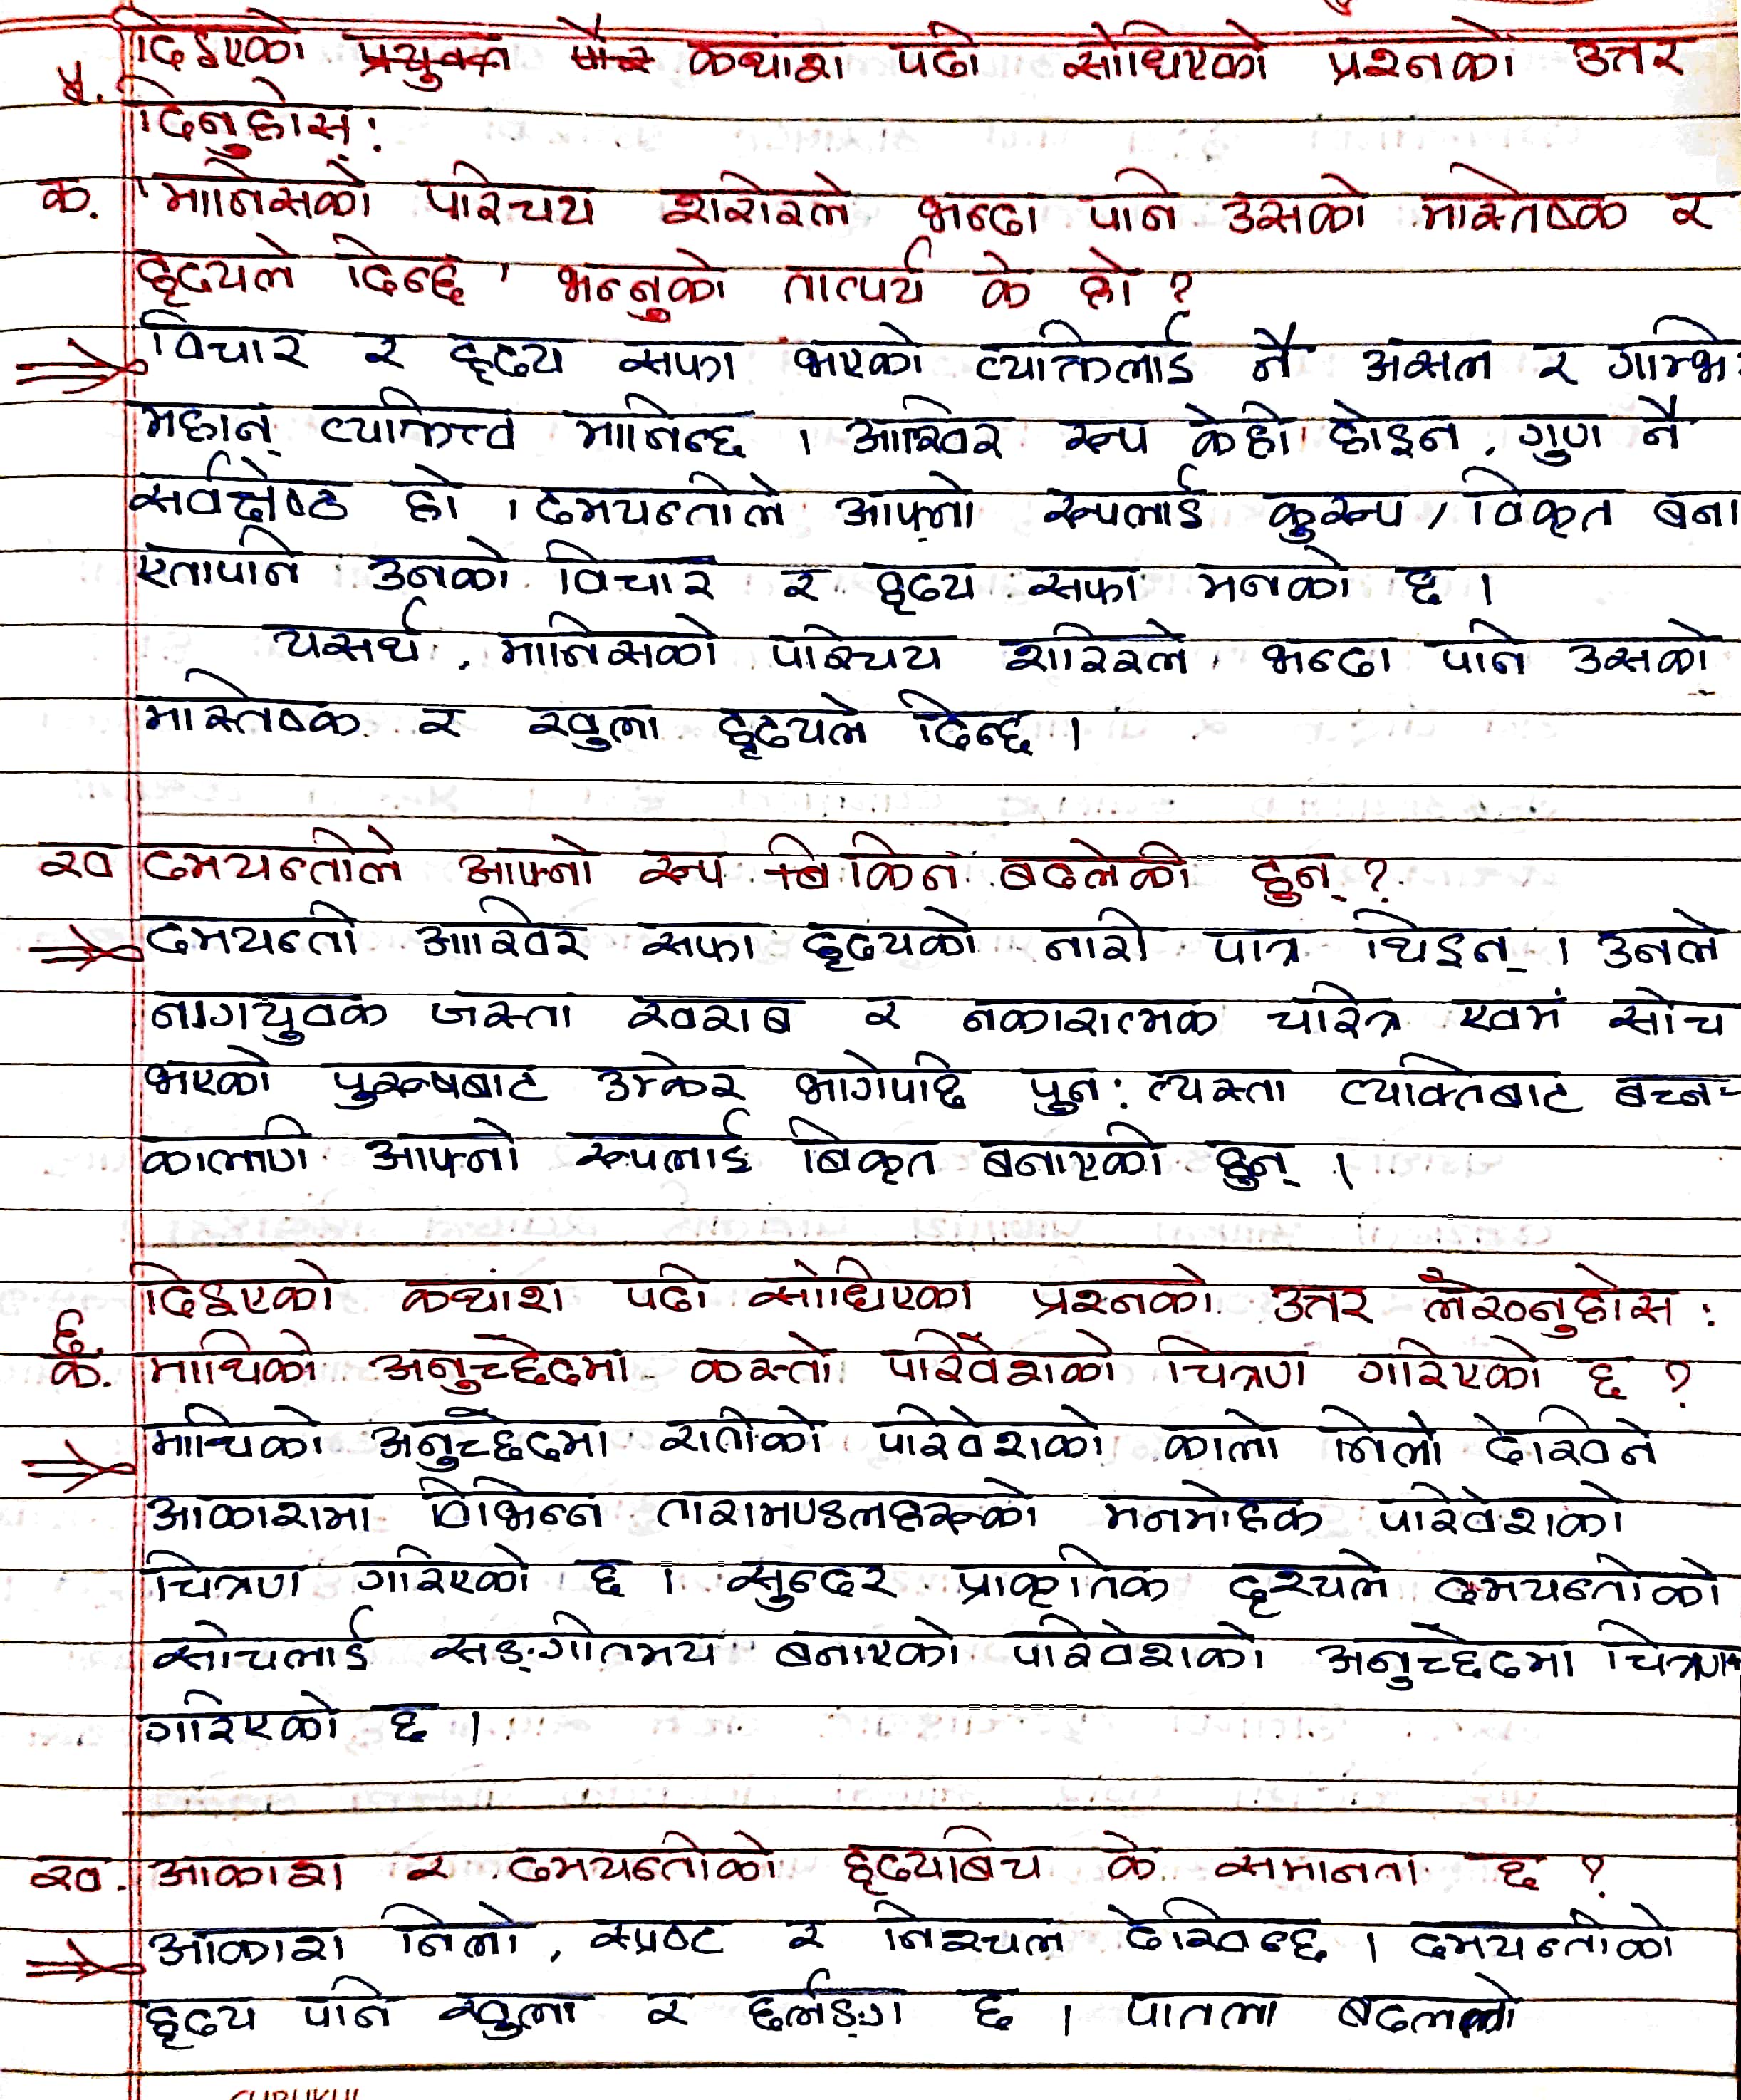 ५. दिइएको प्रयुक्त कथांश पढी सोधिएको प्रश्नको उत्तर
दिनुहोस् :
क. 'मानिसको परिचय शरीरले भन्दा पनि उसको मस्तिष्क र
हृदयले दिन्छ' भन्नुको तात्पर्य के हो ?
विचार र हृदय सफा भएको व्यक्तिलाई नै असल र गम्भि
महान् व्यक्तित्व मानिन्छ । आखिर रूप केही होइन, गुण नै
सर्वश्रेष्ठ हो । दमयन्तीले आफ्नो रूपलाई कुरूप / विकृत बना
एतापनि उनको विचार र हृदय सफा मनको छ ।
यसर्थ, मानिसको परिचय शरिरले भन्दा पनि उसको
मस्तिष्क र खुला हृदयले दिन्छ ।
ख दमयन्तीले आफ्नो रूप किन बदलेकी हुन् ?
दमयन्ती आखिर सफा हृदयको नारी पात्र थिइन् । उनले
नागयुवक जस्ता खराब र नकारात्मक चरित्र एवमं सोच
भएको पुरूषबाट उम्केर भागेपछि पुन: त्यस्ता व्यक्तिबाट बच्न-
कालागि आफ्नो रूपलाई बिकृत बनाएकी हुन् ।
दिइएको कथांश पढी सोधिएका प्रश्नको उत्तर लेख्नुहोस :
६
क. माथिको अनुच्छेदमा कस्तो परिवेशको चित्रण गरिएको छ ?
माथिको अनुच्छेदमा रातीको परिवेशको कालो निलो देखिने
आकाशमा विभिन्न तारामण्डलहरूको मनमोहक परिवेशको
चित्रण गरिएको छ । सुन्दर प्राकृतिक दृश्यले दमयन्तीको
सोचलाई सङ्गीतमय बनाएको परिवेशको अनुच्छेदमा चित्रण
गरिएको छ ।
ख. आकाश र दमयन्तीको हृदयबिच के समानता छ ?
आकाश निलो, स्पष्ट र निश्चल देखिन्छ । दमयन्तीको
हृदय पनि खुला र छर्लङ्ग छ । पातला बदलको